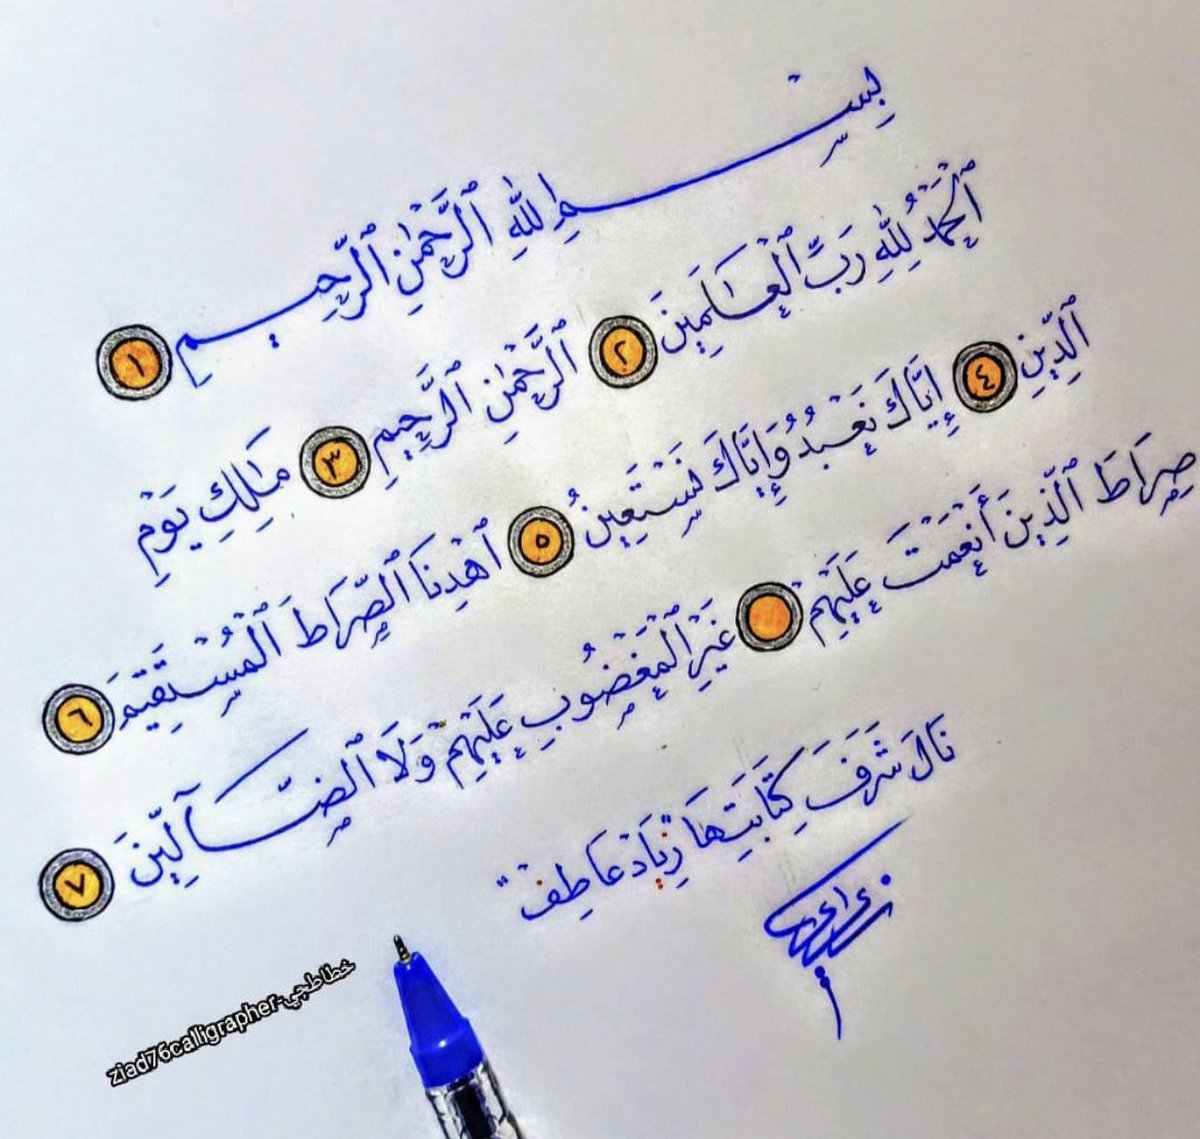 بِسْمِ ٱللَّهِ ٱلرَّحْمَٰنِ ٱلرَّحِيمِ ١
ٱلْحَمْدُ لِلَّهِ رَبِّ ٱلْعَٰلَمِينَ ٢ ٱلرَّحْمَٰنِ ٱلرَّحِيمِ ٣ مَٰلِكِ يَوْمِ
ٱلدِّينِ ٤ إِيَّاكَ نَعْبُدُ وَإِيَّاكَ نَسْتَعِينُ ٥ ٱهْدِنَا ٱلصِّرَاطَ ٱلْمُسْتَقِيمَ ٦
صِرَاطَ ٱلَّذِينَ أَنْعَمْتَ عَلَيْهِمْ غَيْرِ ٱلْمَغْضُوبِ عَلَيْهِمْ وَلَا ٱلضَّآلِّينَ ٧
نَالَ شَرَفَ كِتَابَتِهَا زِيَاد عَاطِفْ
ziad76calligrapher-خطاطجي